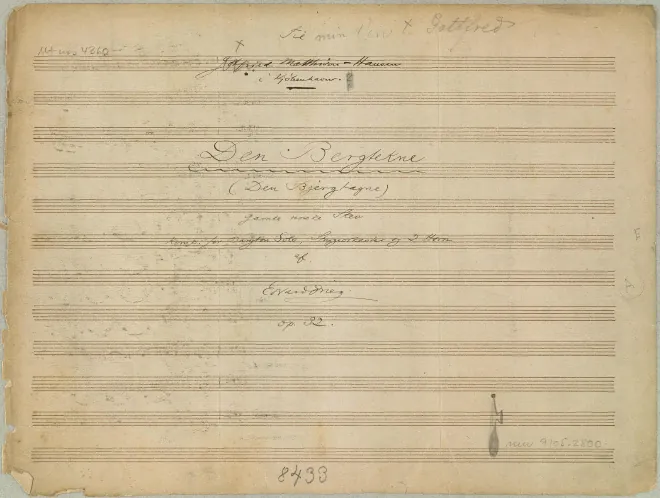 til min Ven G. Gottfred
MA nr. 4260
Gotfred Matthison-Hansen
i Kjöbenhavn.
Den Bergtekne
(Den Bjergtagne)
gamle norske
for Baryton Solo, Strygeorkester og 2 Horn
af
Edvard Grieg
op. 32.
8433